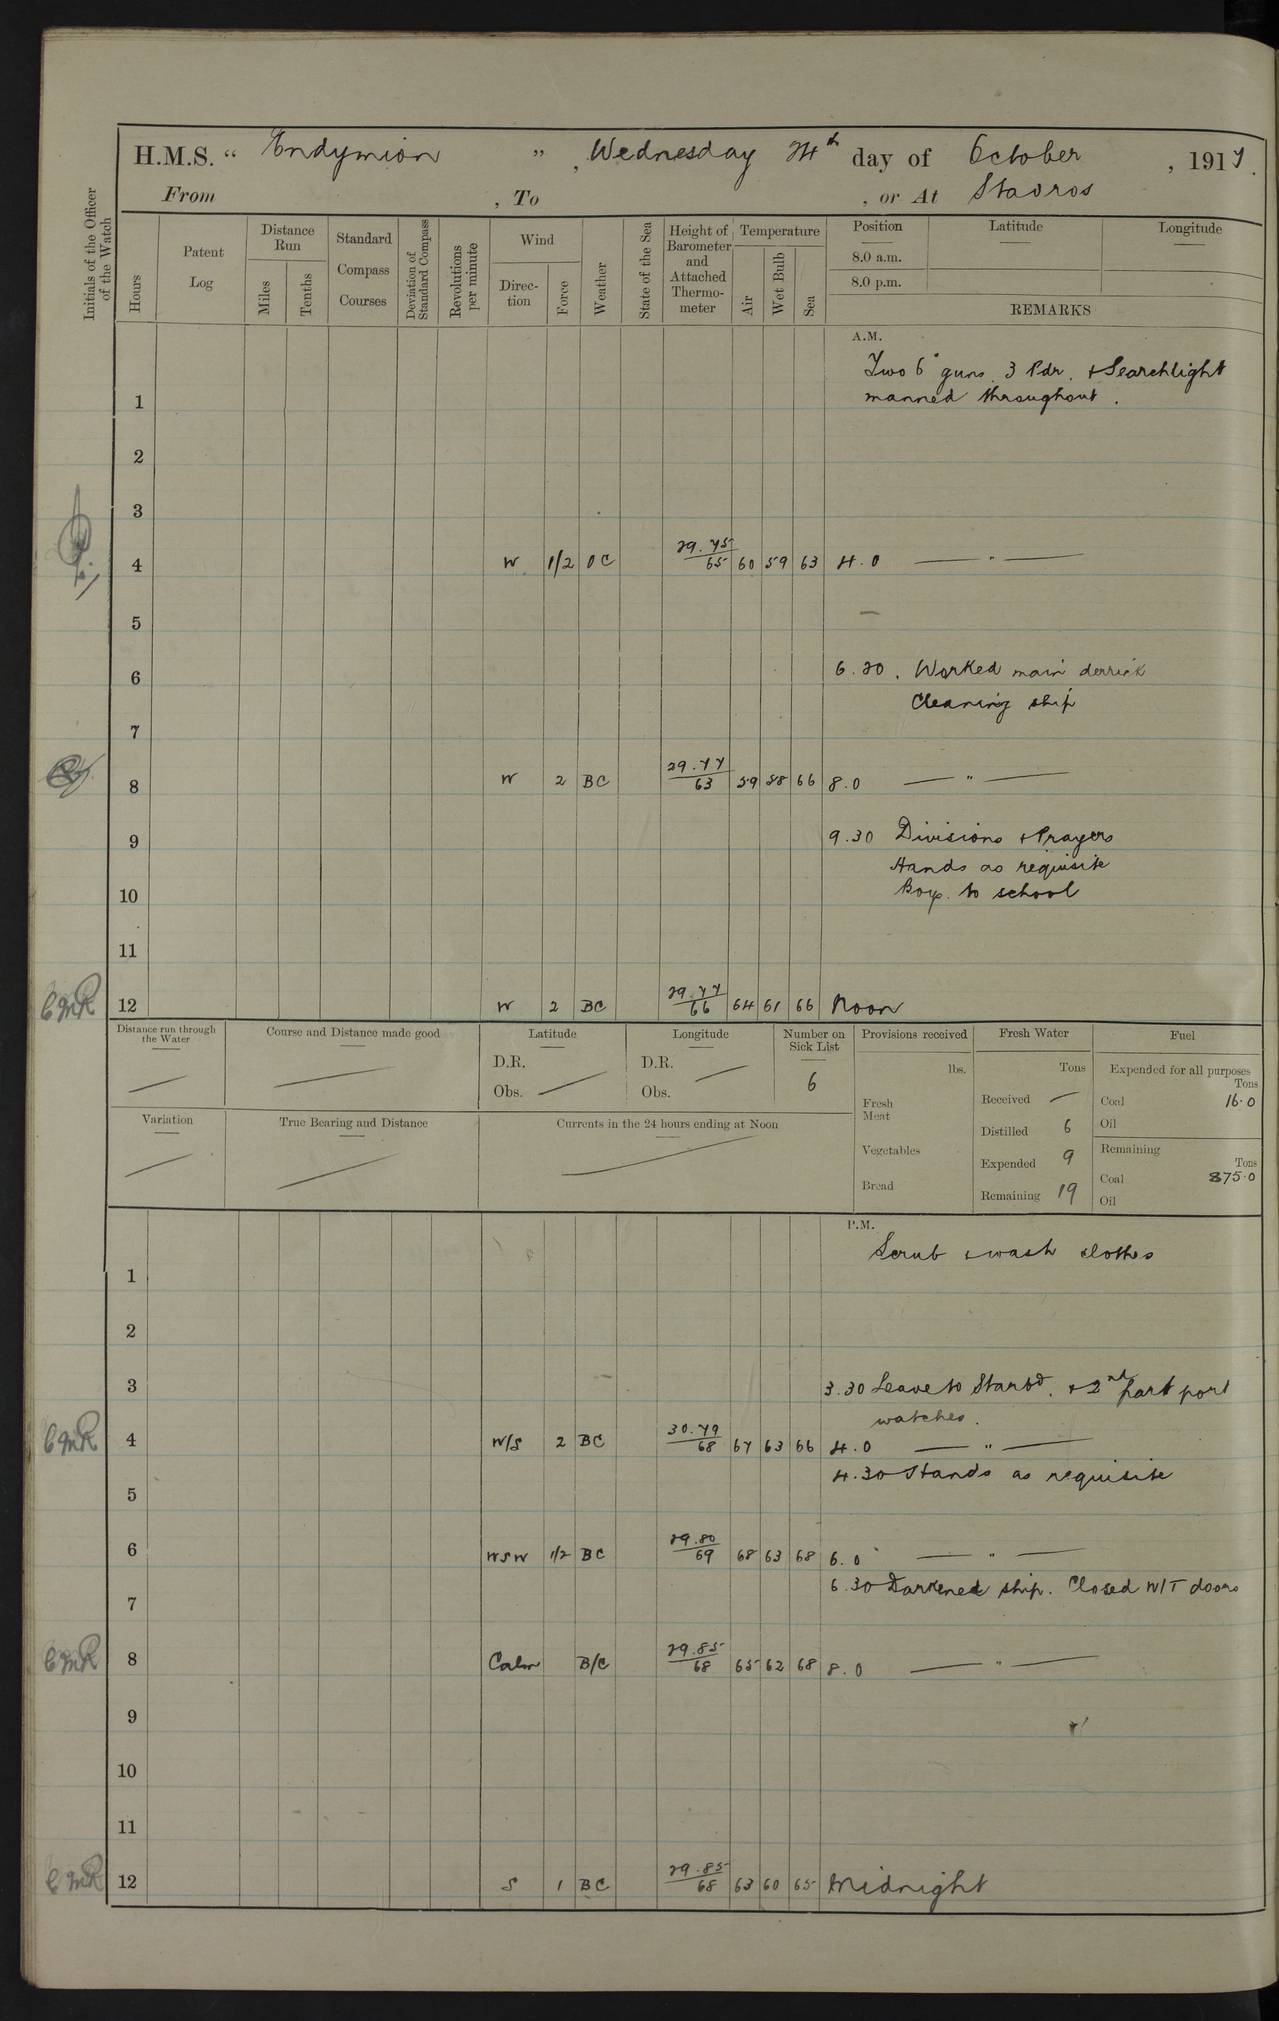 H.M.S. “ Endymion ”, Wednesday 24th day of October, 1917.
From , To , or At Stavros
Initials of the Officer of the Watch
Hours
Patent Log
Distance Run
Miles
Tenths
Standard Compass Courses
Deviation of Standard Compass
Revolutions per minute
Wind
Direction
Force
Weather
State of the Sea
Height of Barometer and Attached Thermometer
Temperature
Air
Wet Bulb
Sea
Position
Latitude
Longitude
8.0 a.m.
8.0 p.m.
REMARKS
A.M.
Two 6" guns. 3 Pdr. + Searchlight
1 manned throughout.
2
3
4 W 1/2 OC 29.75/65 60 59 63 4.0 — " —
5
6 6.20. Worked main derrick
Cleaning ship
7
8 W 2 BC 29.77/63 59 58 66 8.0 — " —
9 9.30 Divisions + Prayers
Hands as requisite
10 Boys to school
11
CMR 12 W 2 BC 29.77/66 64 61 66 Noon
Distance run through the Water
Course and Distance made good
Latitude
D.R.
Obs.
Longitude
D.R.
Obs.
Number on Sick List
6
Provisions received
lbs.
Fresh Meat
Vegetables
Bread
Fresh Water
Tons
Received —
Distilled 6
Expended 9
Remaining 19
Fuel
Expended for all purposes
Tons
Coal 16.0
Oil
Remaining
Tons
Coal 875.0
Oil
Variation
True Bearing and Distance
Currents in the 24 hours ending at Noon
P.M.
Scrub & wash clothes
1
2
3 3.30 Leave to Starbd. + 2nd part port
watches.
CMR 4 W/S 2 BC 30.79/68 67 63 66 4.0 — " —
4.30 Hands as requisite
5
6 WSW 1/2 BC 29.80/69 68 63 68 6.0 — " —
6.30 Darkened ship. Closed W/T doors
7
CMR 8 Calm B/C 29.85/68 65 62 68 8.0 — " —
9
10
11
CMR 12 S 1 BC 29.85/68 63 60 65 Midnight